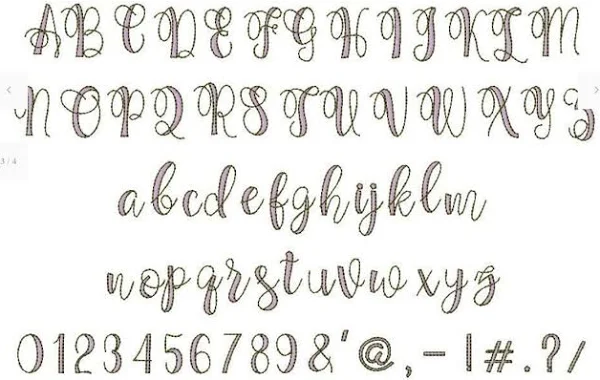 A B C D E F G H I J K L M
N O P Q R S T U V W X Y Z
3 / 4
a b c d e f g h i j k l m
n o p q r s t u v w x y z
0 1 2 3 4 5 6 7 8 9 & ' @ , - ! # . ? /